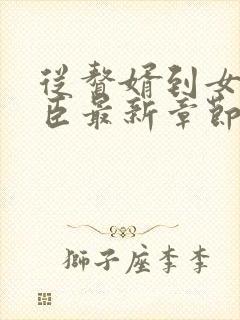 从赘婿到女
臣最新章節
獅子座李李